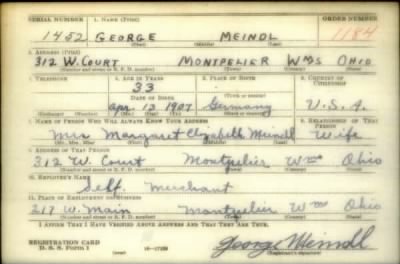 SERIAL NUMBER 1. NAME (Print) ORDER NUMBER
1452 GEORGE MEINDL 1184
(First) (Middle) (Last)
2. ADDRESS (Print)
312 W. COURT MONTPELIER WMS OHIO
(Number and street or R. F. D. number) (Town) (County) (State)
3. TELEPHONE 4. AGE IN YEARS 5. PLACE OF BIRTH 6. COUNTRY OF CITIZENSHIP
33
DATE OF BIRTH (Town or county)
Apr. 13 1907 Germany U.S.A.
(Mo.) (Day) (Yr.) (State or country)
7. NAME OF PERSON WHO WILL ALWAYS KNOW YOUR ADDRESS 8. RELATIONSHIP OF THAT PERSON
Mrs Margaret Elizabeth Meindl Wife
(Mr., Mrs., Miss) (First) (Middle) (Last)
9. ADDRESS OF THAT PERSON
312 W. Court Montpelier Wms Ohio
(Number and street or R. F. D. number) (Town) (County) (State)
10. EMPLOYER'S NAME
Self. Merchant
11. PLACE OF EMPLOYMENT OR BUSINESS
217 W. Main Montpelier Wms Ohio
(Number and street or R. F. D. number) (Town) (County) (State)
I AFFIRM THAT I HAVE VERIFIED ABOVE ANSWERS AND THAT THEY ARE TRUE.
REGISTRATION CARD
D. S. S. Form 1 (over) 16-17105 George Meindl
(Registrant's signature)